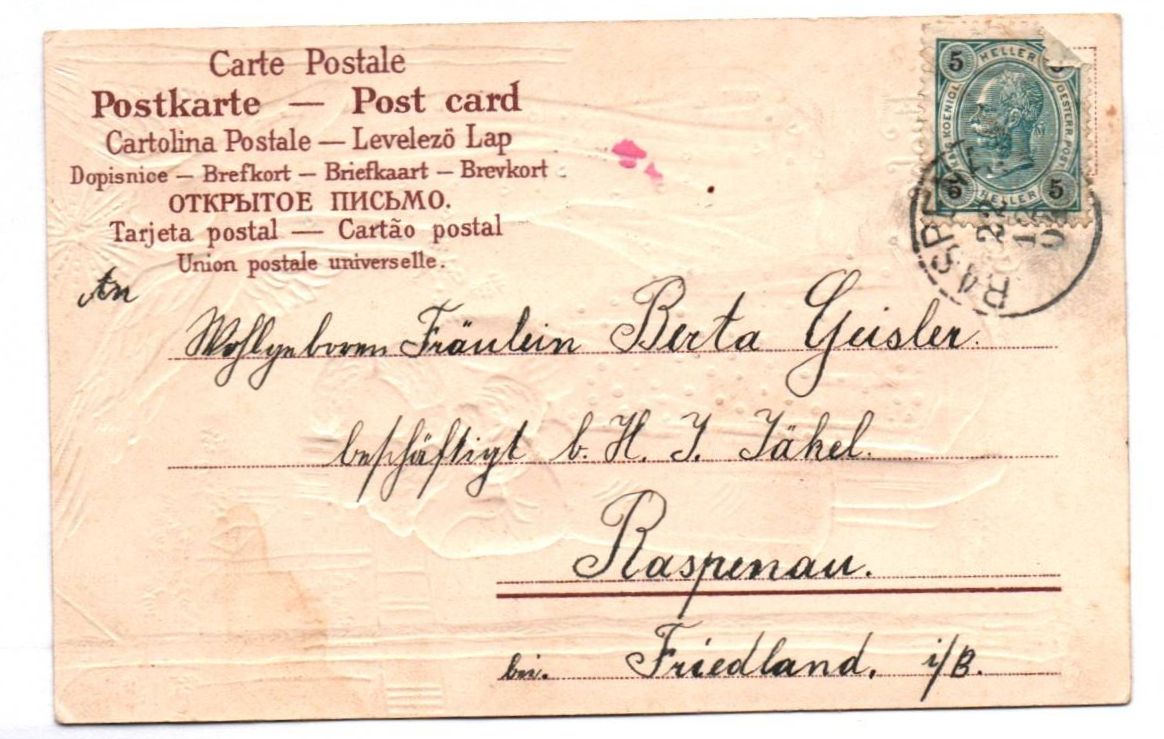 Carte Postale
Postkarte — Post card
Cartolina Postale — Levelezö Lap
Dopisnice — Brefkort — Briefkaart — Brevkort
ОТКРЫТОЕ ПИСЬМО.
Tarjeta postal — Cartão postal
Union postale universelle.
5 HELLER
KAIS KOENIGL OESTERR. POST
5 HELLER 5
An
Wohlgeboren Fräulein Berta Geisler.
beschäftigt b. H. J. Jäkel.
Raspenau.
bei. Friedland. i/B.